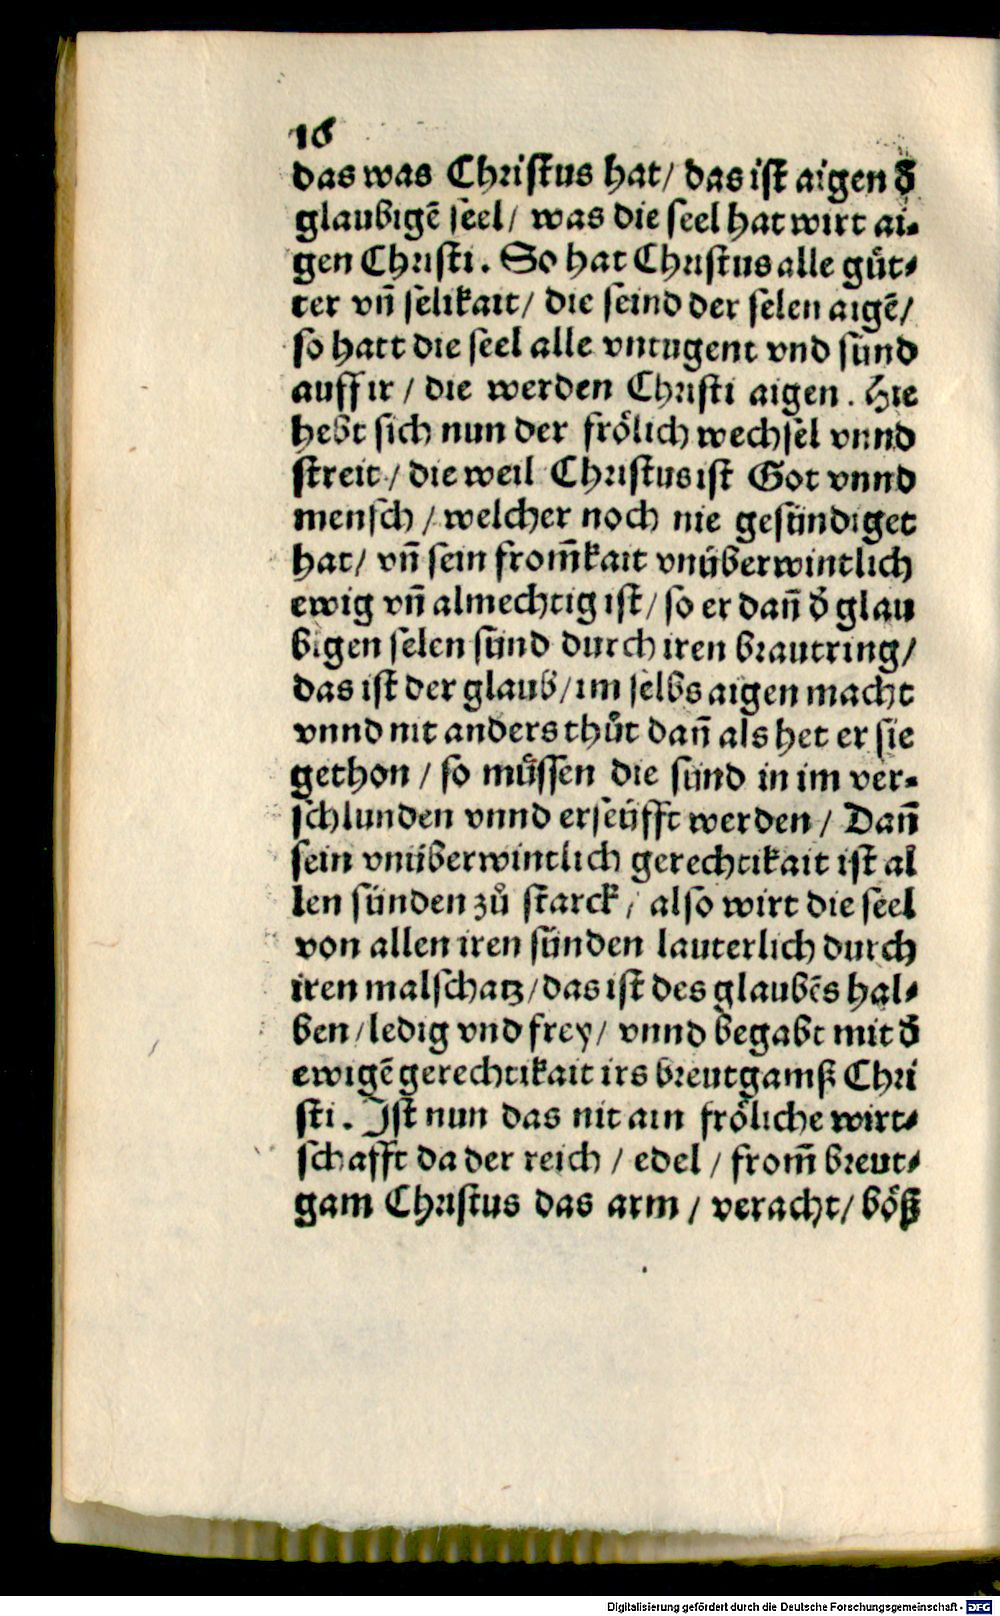 16
das was Christus hat/ das ist aigen d̄
glaubigē seel/ was die seel hat wirt ai-
gen Christi. So hat Christus alle guͤt-
ter vñ selikait/ die seind der selen aigē/
so hatt die seel alle vntugent vnd sünd
auff ir / die werden Christi aigen. Hie
hebt sich nun der froͤlich wechsel vnnd
streit / die weil Christus ist Got vnnd
mensch / welcher noch nie gesündiget
hat/ vñ sein from̄kait vnüberwintlich
ewig vñ almechtig ist/ so er dañ d̄ glau
bigen selen sünd durch iren brautring/
das ist der glaub/ im selbs aigen macht
vnnd nit anders thuͦt dañ als het er sie
gethon / so muͤssen die sünd in im ver-
schlunden vnnd erseüfft werden / Dañ
sein vnüberwintlich gerechtikait ist al
len sünden zuͦ starck / also wirt die seel
von allen iren sünden lauterlich durch
iren malschatz/ das ist des glaubēs hal-
ben / ledig vnd frey/ vnnd begabt mit d̄
ewigē gerechtikait irs breutgamß Chri
sti. Ist nun das nit ain froͤliche wirt-
schafft da der reich / edel / from̄ breut-
gam Christus das arm / veracht/ boͤß
Digitalisierung gefördert durch die Deutsche Forschungsgemeinschaft - DFG